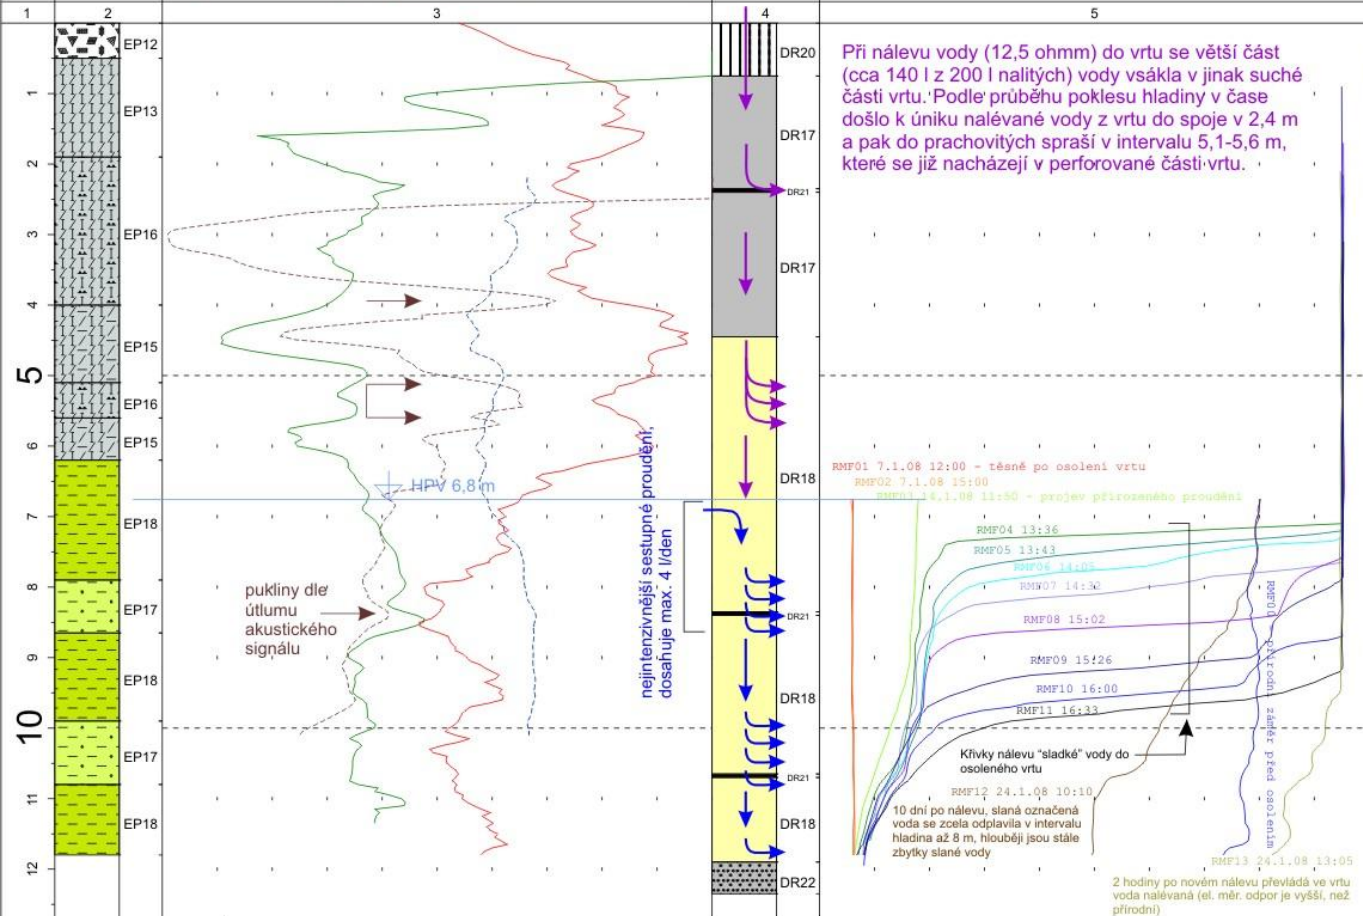 1
2
3
4
5
EP12
EP13
EP16
EP15
EP16
EP15
EP18
EP17
EP18
EP17
EP18
1
2
3
4
5
6
7
8
9
10
11
12
HPV 6,8 m
pukliny dle
útlumu
akustického
signálu
nejintenzivnější sestupné proudění,
dosahuje max. 4 l/den
DR20
DR17
DR21
DR17
DR18
DR21
DR18
DR21
DR18
DR22
Při nálevu vody (12,5 ohmm) do vrtu se větší část
(cca 140 l z 200 l nalitých) vody vsákla v jinak suché
části vrtu. Podle průběhu poklesu hladiny v čase
došlo k úniku nalévané vody z vrtu do spoje v 2,4 m
a pak do prachovitých spraší v intervalu 5,1-5,6 m,
které se již nacházejí v perforované části vrtu.
RMF01 7.1.08 12:00 - těsně po osolení vrtu
RMF02 7.1.08 15:00
14.1.08 11:50 - projev přirozeného proudění
RMF04 13:36
RMF05 13:43
RMF06 14:05
RMF07 14:32
RMF08 15:02
RMF09 15:26
RMF10 16:00
RMF11 16:33
přírodní záměr před osolením
Křivky nálevu "sladké" vody do
osoleného vrtu
RMF12 24.1.08 10:10
10 dní po nálevu, slaná označená
voda se zcela odplavila v intervalu
hladina až 8 m, hlouběji jsou stále
zbytky slané vody
RMF13 24.1.08 13:05
2 hodiny po novém nálevu převládá ve vrtu
voda nalévaná (el. měr. odpor je vyšší, než
přírodní)